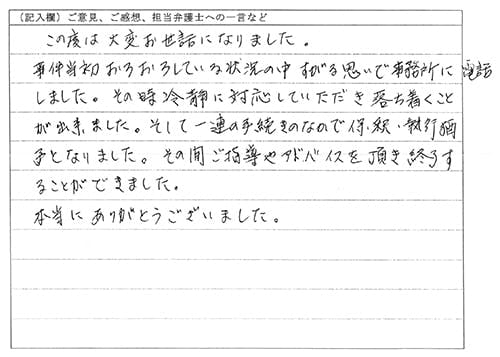 (記入欄)ご意見、ご感想、担当弁護士への一言など
この度は大変お世話になりました。
事件当初おろおろしている状況の中すがる思いで事務所に電話
しました。その時冷静に対応していただき落ち着くこと
が出来ました。そして一連の手続きのなかで保釈・執行猶
予となりました。その間ご指導やアドバイスを頂き終了す
ることができました。
本当にありがとうございました。